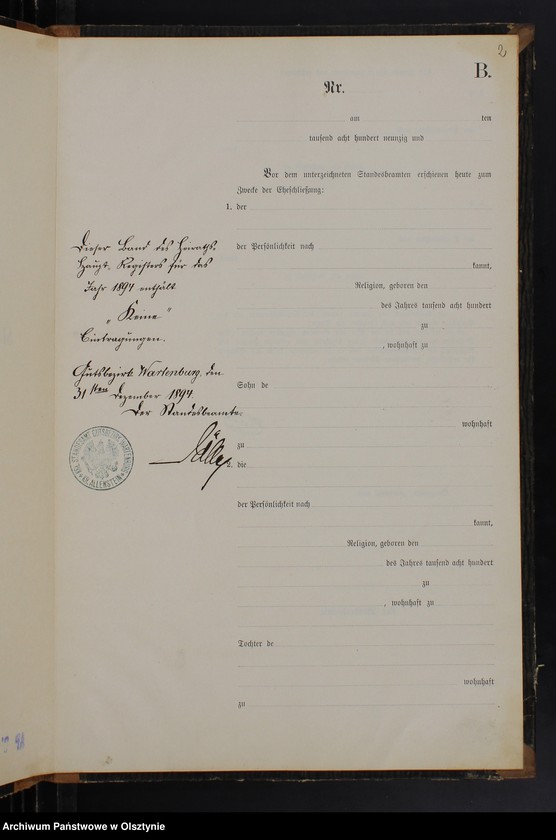 2
B.
Nr.
am ten
tausend acht hundert neunzig und
Vor dem unterzeichneten Standesbeamten erschienen heute zum
Zwecke der Eheschließung:
1. der
der Persönlichkeit nach
kannt,
Religion, geboren den
des Jahres tausend acht hundert
zu
, wohnhaft zu
Sohn de
wohnhaft
zu
2. die
der Persönlichkeit nach
kannt,
Religion, geboren den
des Jahres tausend acht hundert
zu
, wohnhaft zu
Tochter de
wohnhaft
zu
Dieser Band des Heiraths-
Haupt-Registers für das
Jahr 1894 enthält
„Keine"
Eintragungen.
Gutsbezirk Wartenburg, den
31sten Dezember 1894.
Der Standesbeamte.
KR. ALLENSTEIN
Archiwum Państwowe w Olsztynie